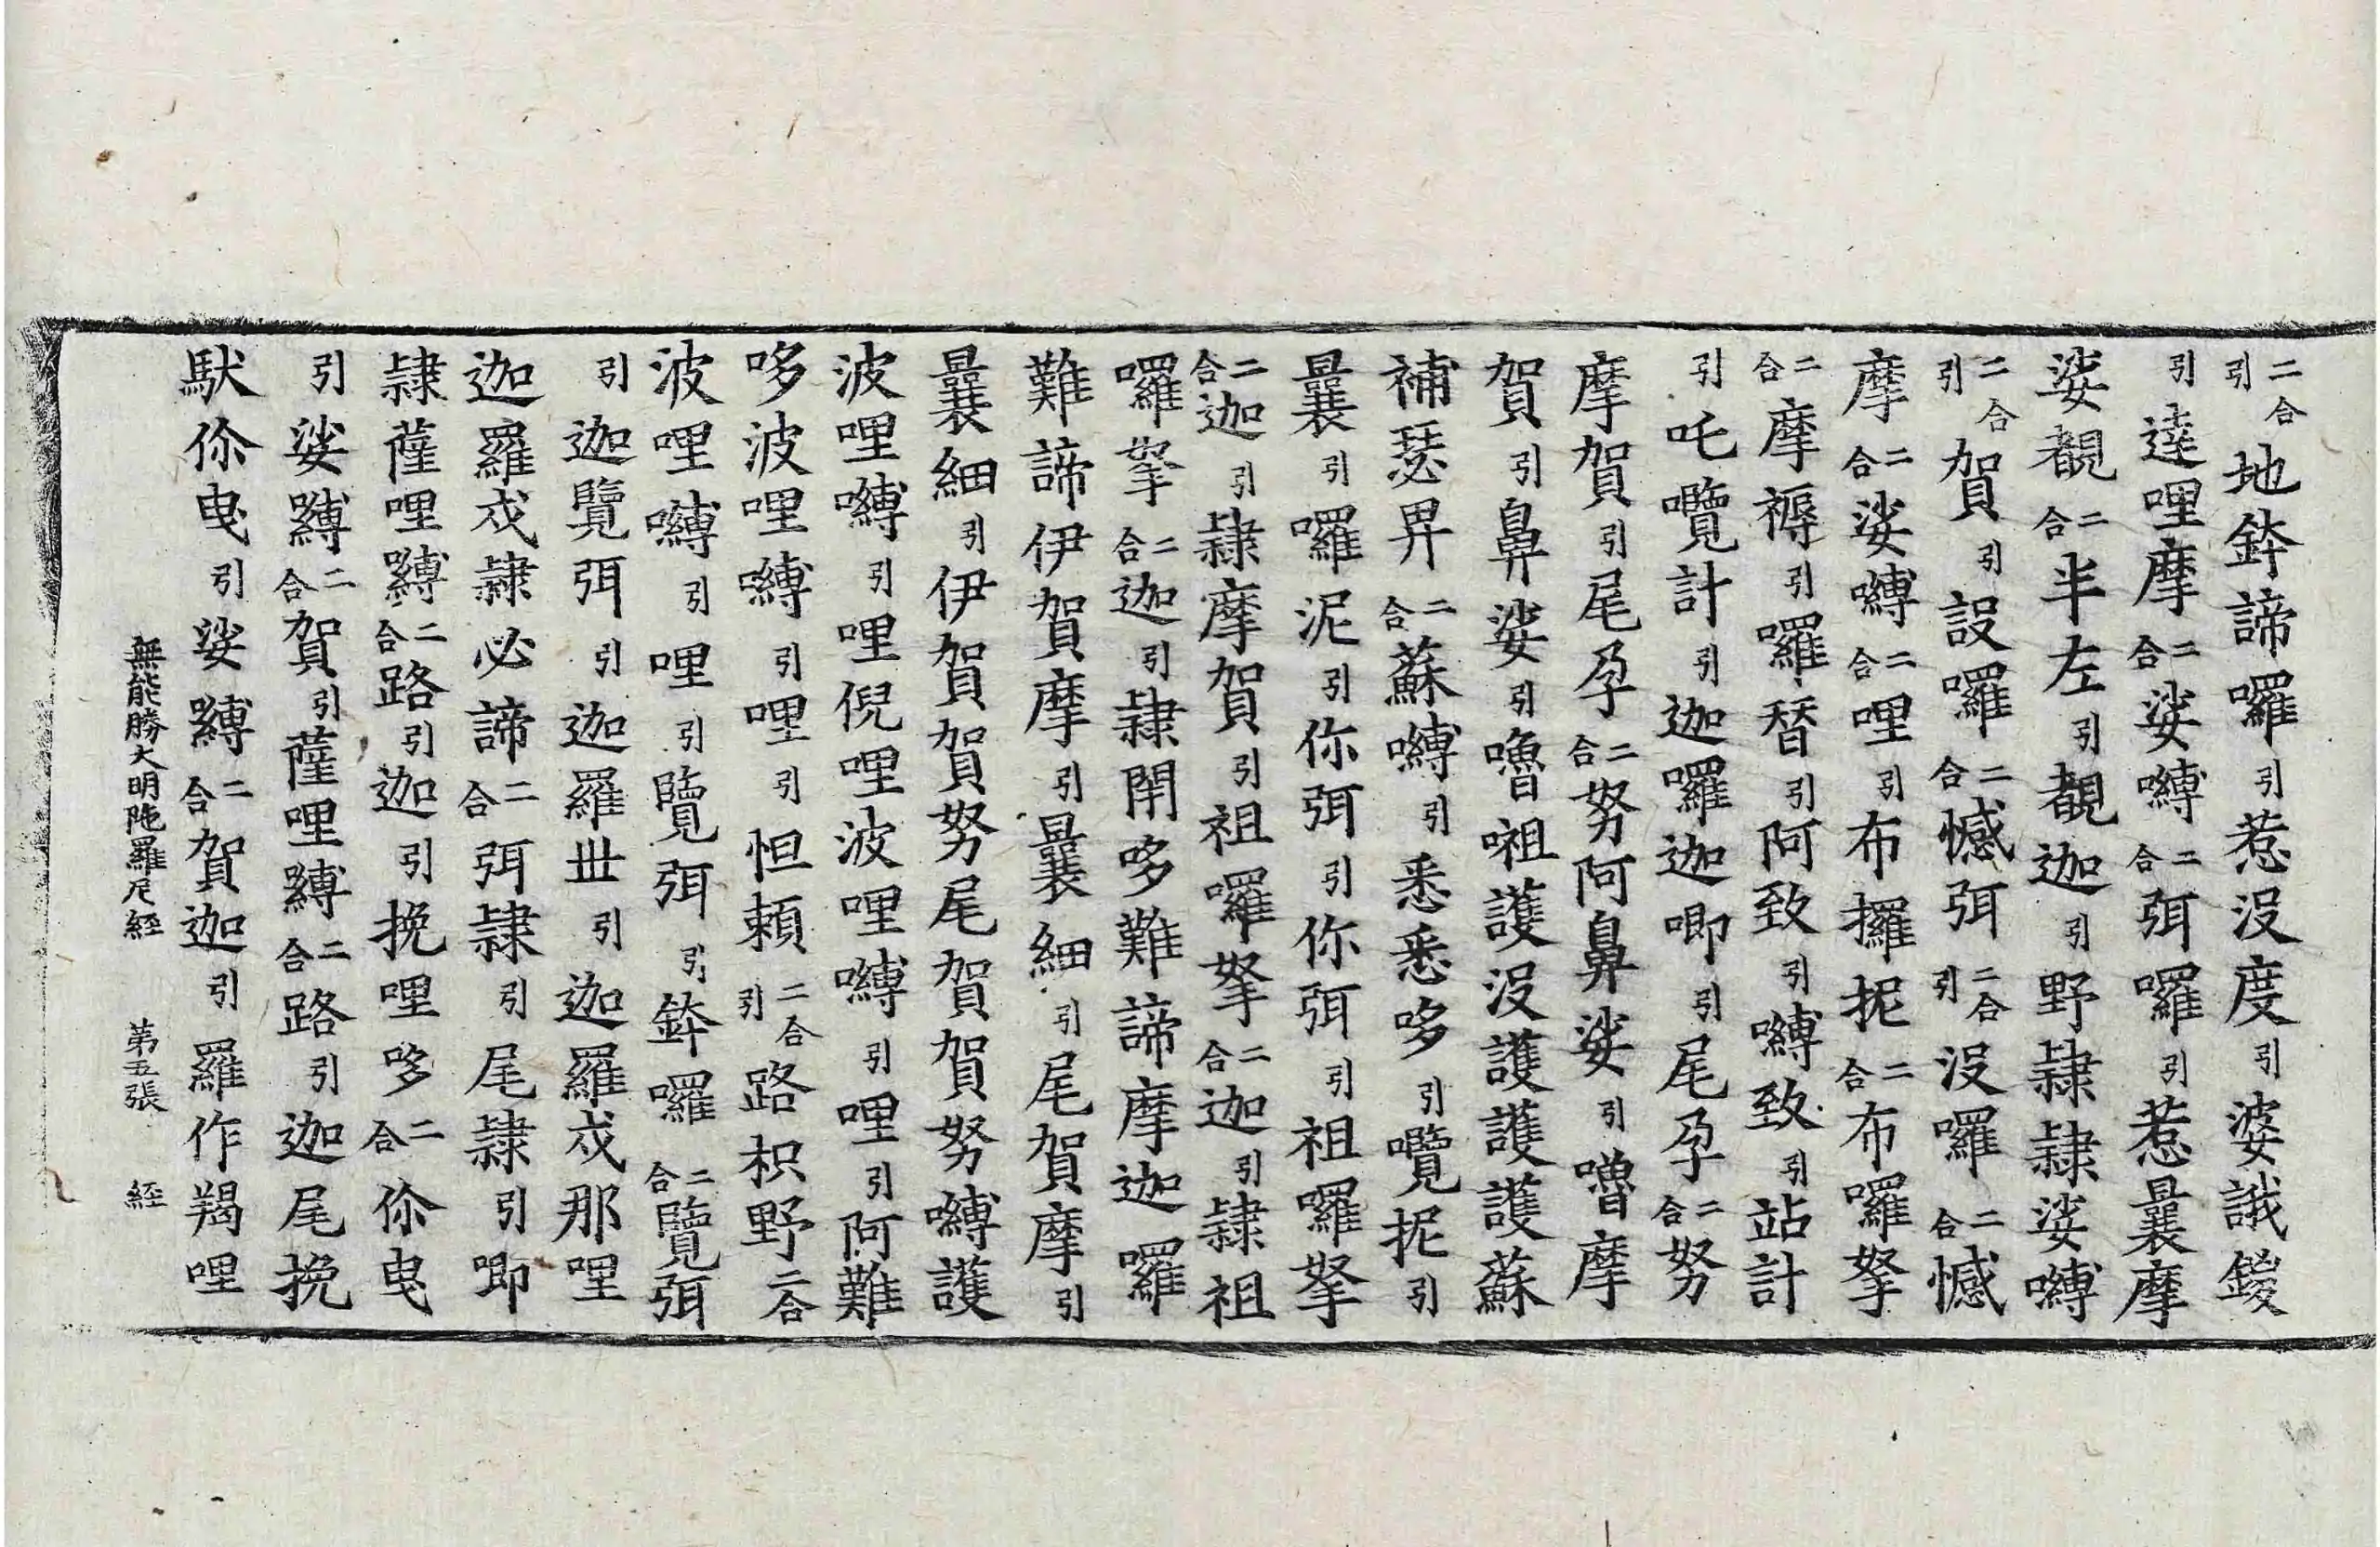 二合引地鉢諦囉引惹沒度引婆誐鍐
引達哩摩二合娑嚩二合弭囉引惹曩摩
娑覩二合半左引覩迦引野隷隷娑嚩
二合引賀引設囉二合憾弭二合引沒囉二合憾
摩二合娑嚩二合哩引布攞抳二合布囉拏
二合摩褥引囉朁引阿致引嚩致引站計
引吒囕計引迦囉迦唧引尾孕二合努
摩賀引尾孕二合努阿鼻娑引嚕摩
賀引鼻娑引嚕嚩護沒護護護蘇
補瑟畀二合蘇嚩引悉悉哆引囕抳引
曩引囉泥引你弭引你弭引祖囉拏
二合迦引隷摩賀引祖囉拏二合迦引隷祖
囉拏二合迦引隷閉哆難諦摩迦囉
難諦伊賀摩引曩細引尾賀摩引
曩細引伊賀賀努尾賀賀努嚩護
波哩嚩引哩倪哩波哩嚩引哩引阿難
哆波哩嚩引哩引怛賴二合引路枳野二合
波哩嚩引哩引覽弭引鉢囉二合覽弭
引迦覽弭引迦羅丗引迦羅戍那哩
迦羅戍隷必諦二合弭隷引尾隷引唧
隷薩哩嚩二合路引迦引挽哩哆二合你曳
引娑嚩二合賀引薩哩嚩二合路引迦尾挽
馱你曳引娑嚩二合賀迦引羅作羯哩
無能勝大明陁羅尼經　第五張　經